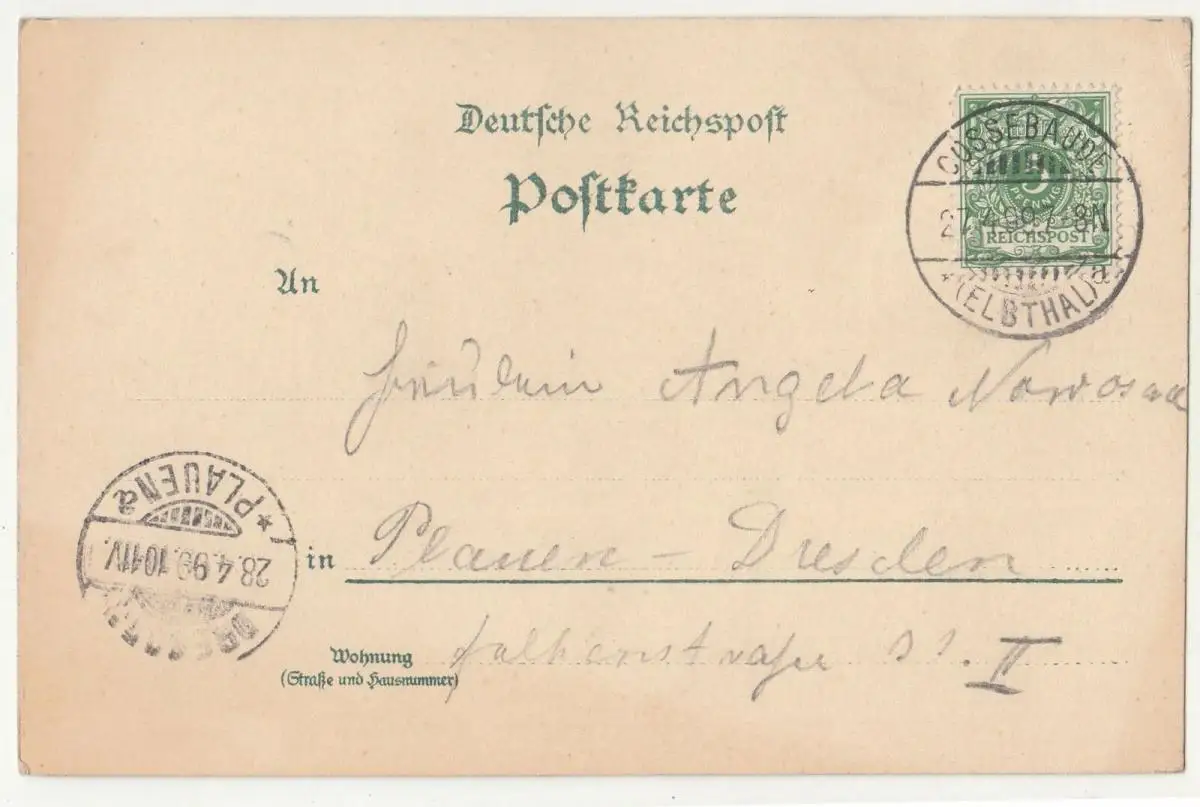 Deutsche Reichspost
Postkarte
COSSEBAUDE
27.4.99. 7-8N
*(ELBTHAL)a
5
PFENNIG
REICHSPOST
An
Fräulein Angela
*PLAUEN a
28.4.99. 10-11V.
DRESDEN
in Plauen – Dresden
Wohnung Falkenstraße II
(Straße und Hausnummer)